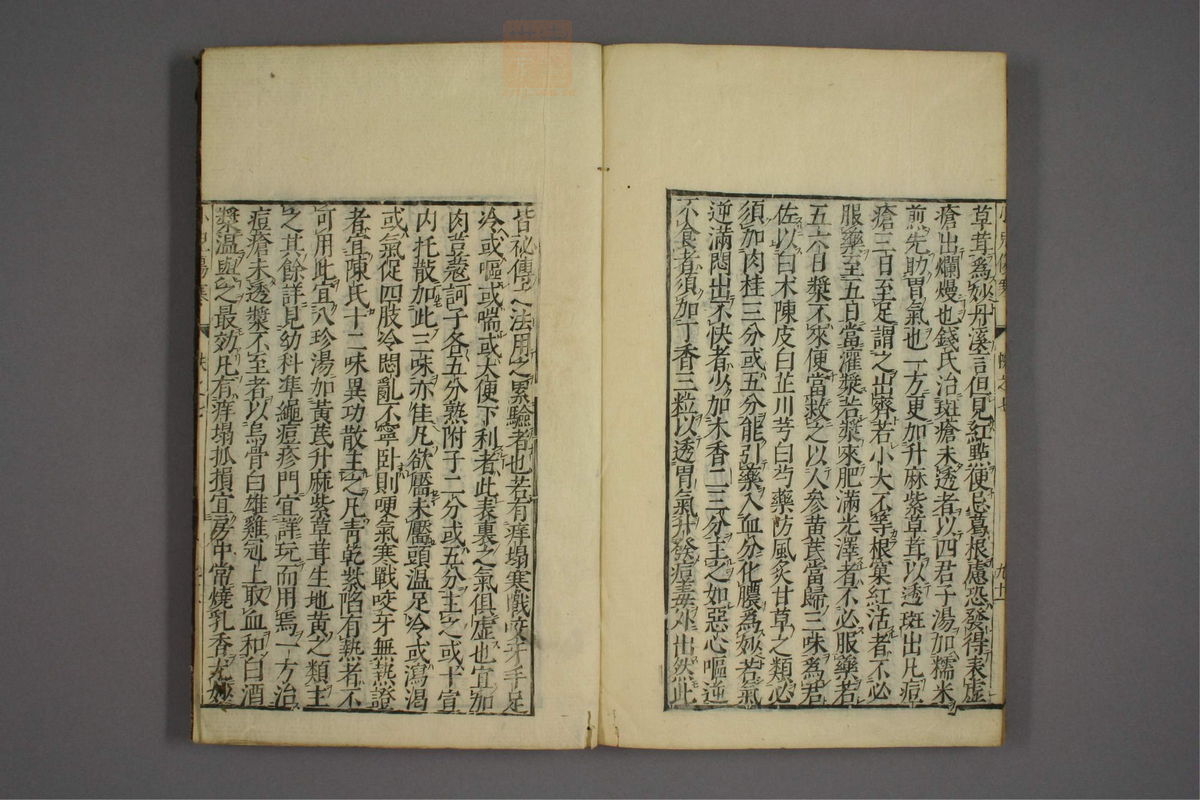 草茸爲妙丹溪言但見紅點便忌葛根慮恐發得表虛
瘡出爛熳也錢氏治斑瘡未透者以四君子湯加糯米
煎先助胃氣也一方更加升麻紫草茸以透斑出凡痘
瘡三日至足謂之出齊若小大不等根窠紅活者不必
服藥至五日當灌漿若漿來肥滿光澤者不必服藥若
五六日漿不來便當救之以人參黃芪當歸三味爲君
佐以白朮陳皮白芷川芎白芍藥防風炙甘草之類必
須加肉桂三分或五分能引藥入血分化膿爲妙若氣
逆滿悶出不快者少加木香二三分主之如惡心嘔逆
不食者須加丁香三粒以透胃氣升發痘毒外出然此
皆祕傳之法用之累驗者也若有痒塌寒戰咬牙手足
冷或嘔或喘或大便下利者此表裏之氣俱虛也宜加
肉荳蔻訶子各五分熟附子二分或五分主之或十宣
內托散加此三味亦佳凡欲靨未靨頭溫足冷或瀉渴
或氣促四肢冷悶亂不寧臥則哽氣寒戰咬牙無熱證
者宜陳氏十二味異功散主之凡靑乾紫陷有熱者不
可用此宜八珍湯加黃芪升麻紫草茸生地黃之類主
之其餘詳見幼科準繩痘疹門宜詳玩而用焉一方治
痘瘡未透漿不至者以烏骨白雄雞冠上取血和白酒
漿溫與之最効凡有痒塌抓損宜房中常燒乳香尤妙